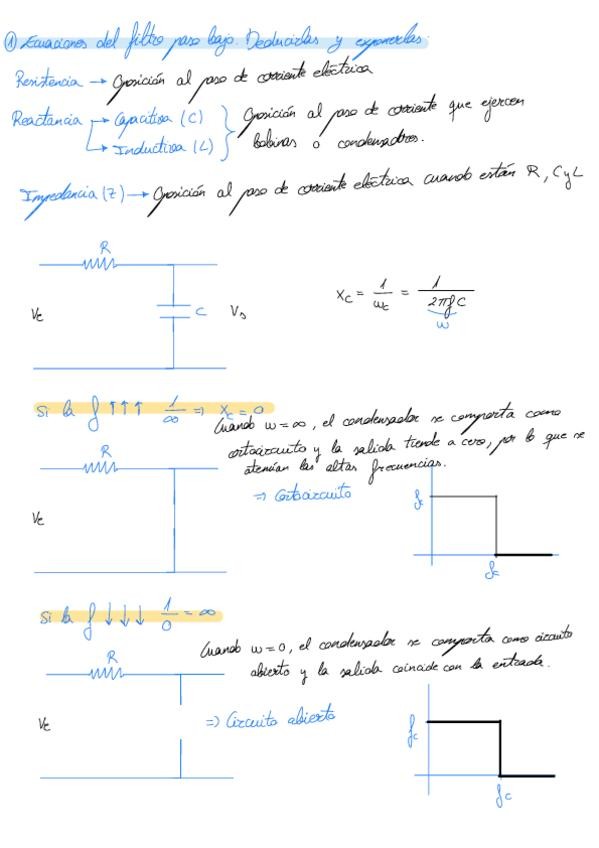 ① Ecuaciones del filtro paso bajo. Deducirlas y exponerlas.
Resistencia → Oposición al paso de corriente eléctrica
Reactancia → Capacitiva (C)
↳ Inductiva (L)
} Oposición al paso de corriente que ejercen
bobinas o condensadores.
Impedancia (Z) → Oposición al paso de corriente eléctrica cuando están R, C y L
R
Ve
C
Vs
Xc = 1/ωc = 1/2πfC
ω
Si la f ↑↑↑ 1/∞ ⇒ Xc = 0
Cuando ω = ∞, el condensador se comporta como
cortocircuito y la salida tiende a cero, por lo que se
atenúan las altas frecuencias.
R
Ve
⇒ Cortocircuito
fc
fc
Si la f ↓↓↓ 1/0 = ∞
Cuando ω = 0, el condensador se comporta como circuito
abierto y la salida coincide con la entrada.
R
Ve
⇒ Circuito abierto
fc
fc